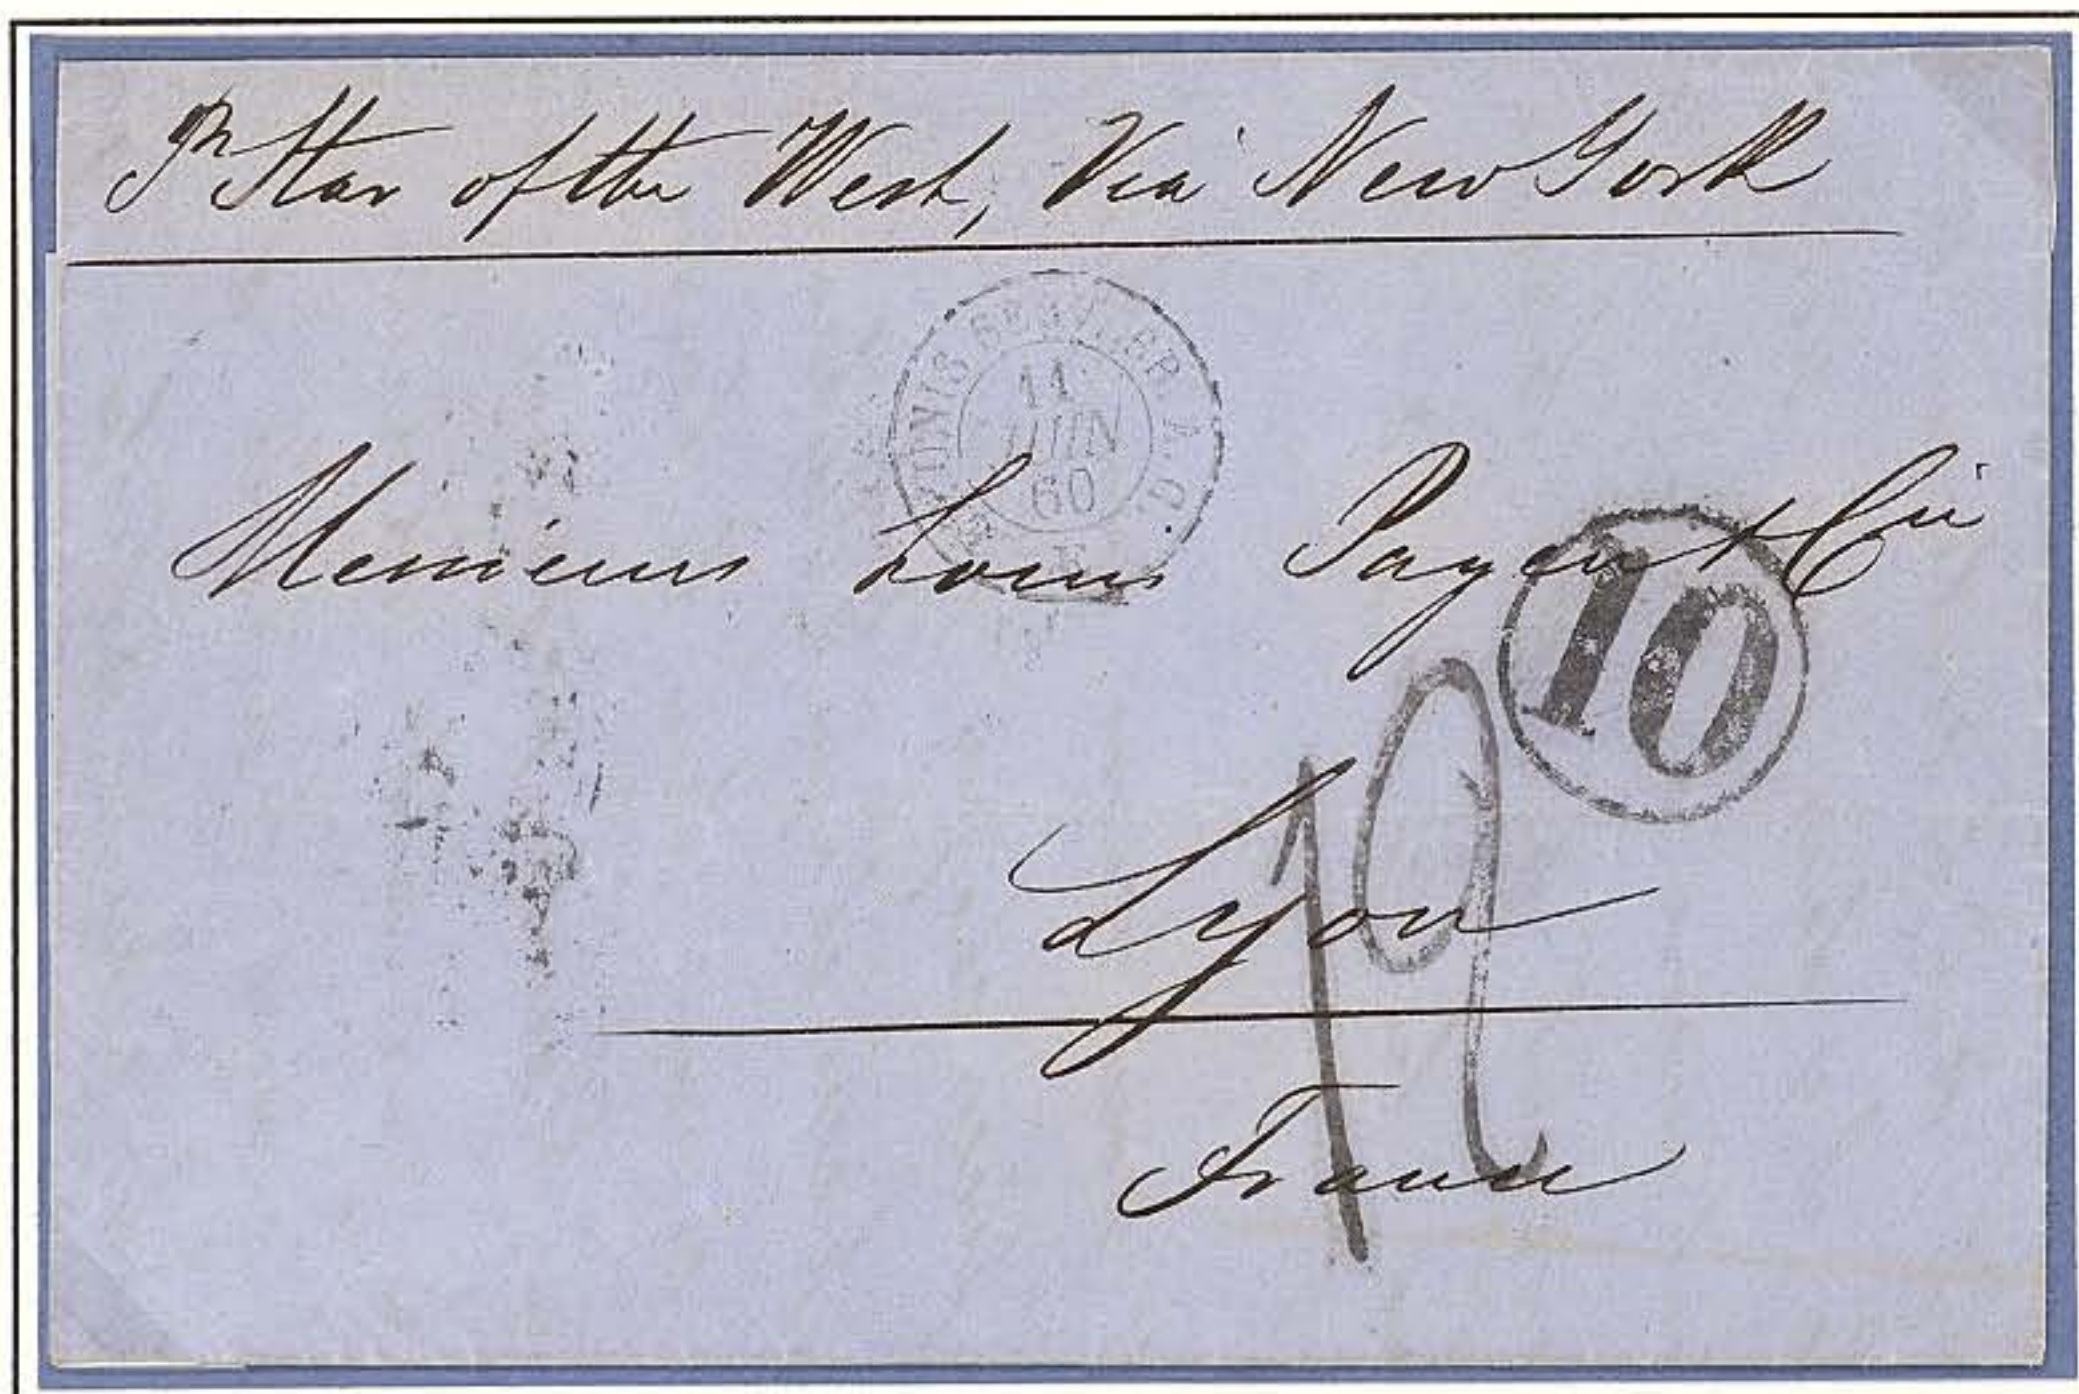 Pr Star of the West, Via New York
11
JUIN
60
Messieurs Louis Payen & Cie
10
Lyon
France